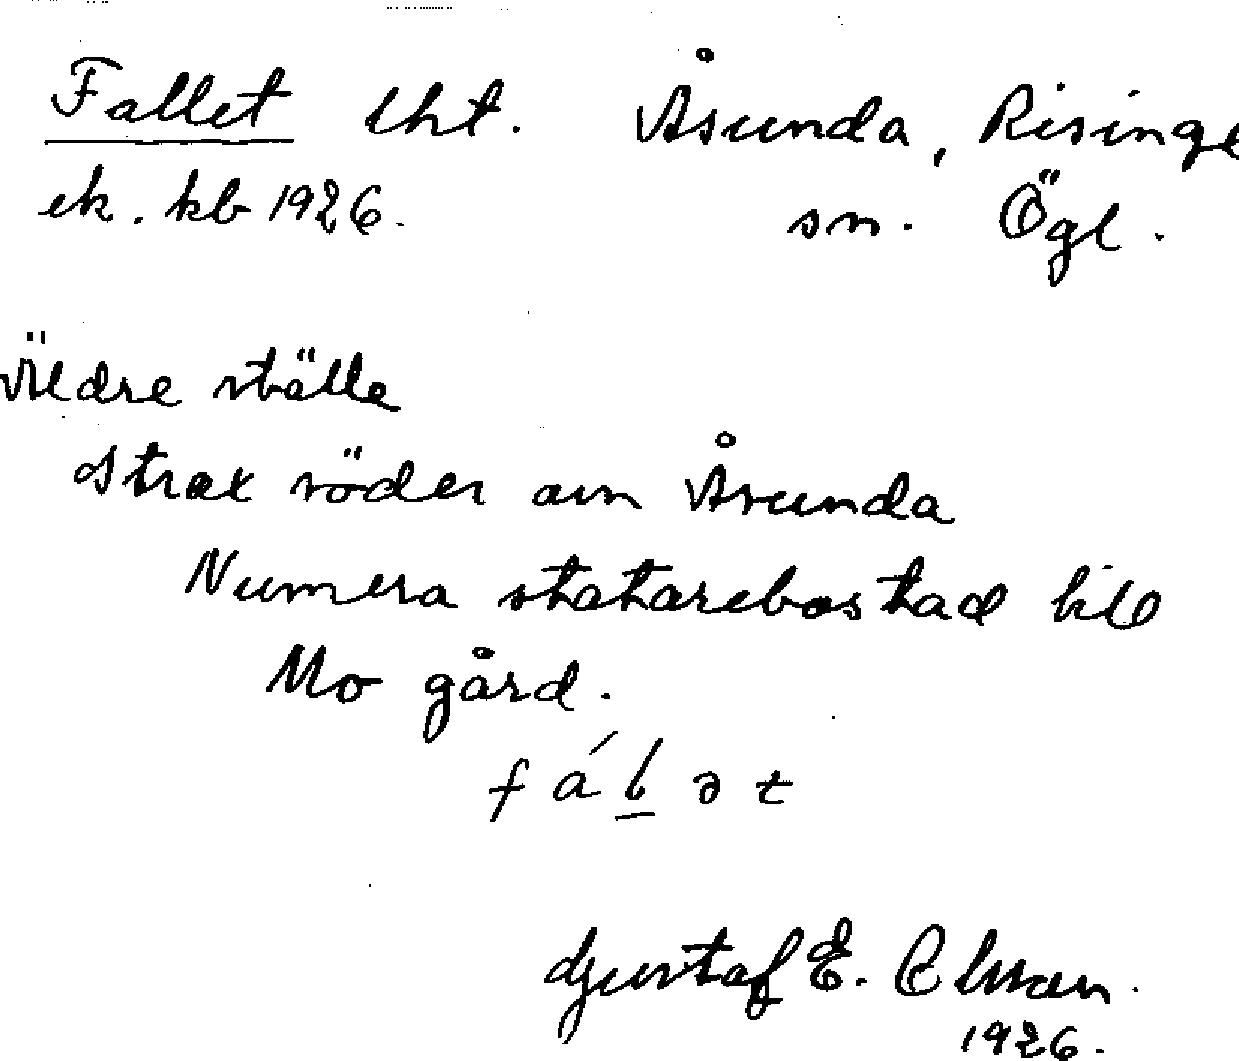 Fallet lht. Åsunda, Risinge
ek. kb 1926. sn. Ögl.
Äldre ställe
strax söder om Åsunda
Numera statarebostad till
Mo gård.
fálət
Gustaf E.
1926.